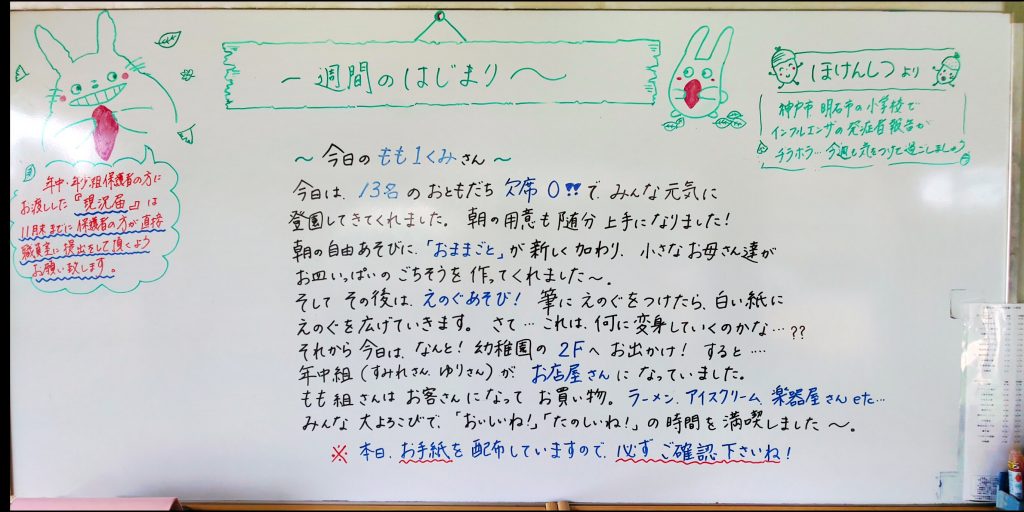 一週間のはじまり〜
ほけんしつより
神戸市、明石市の小学校で
インフルエンザの発症者報告が
チラホラ…今週も気をつけて過ごしましょう
年中・年少組保護者の方に
お渡しした『現況届』は
11月末までに保護者の方が直接
職員室に提出をして頂くよう
お願い致します。
〜今日のもも1くみさん〜
今日は、13名のおともだち欠席0!!で、みんな元気に
登園してきてくれました。朝の用意も随分上手になりました!
朝の自由あそびに、「おままごと」が新しく加わり、小さなお母さん達が
お皿いっぱいのごちそうを作ってくれました〜。
そしてその後は、えのぐあそび!筆にえのぐをつけたら、白い紙に
えのぐを広げていきます。さて…これは、何に変身していくのかな…??
それから今日は、なんと!幼稚園の2Fへお出かけ!すると…
年中組(すみれさん、ゆりさん)が、お店屋さんになっていました。
もも組さんはお客さんになってお買い物。ラーメン、アイスクリーム、楽器屋さんetc…
みんな大よろこびで、「おいしいね!」「たのしいね!」の時間を満喫しました〜。
※本日、お手紙を配布していますので、必ずご確認下さいね!